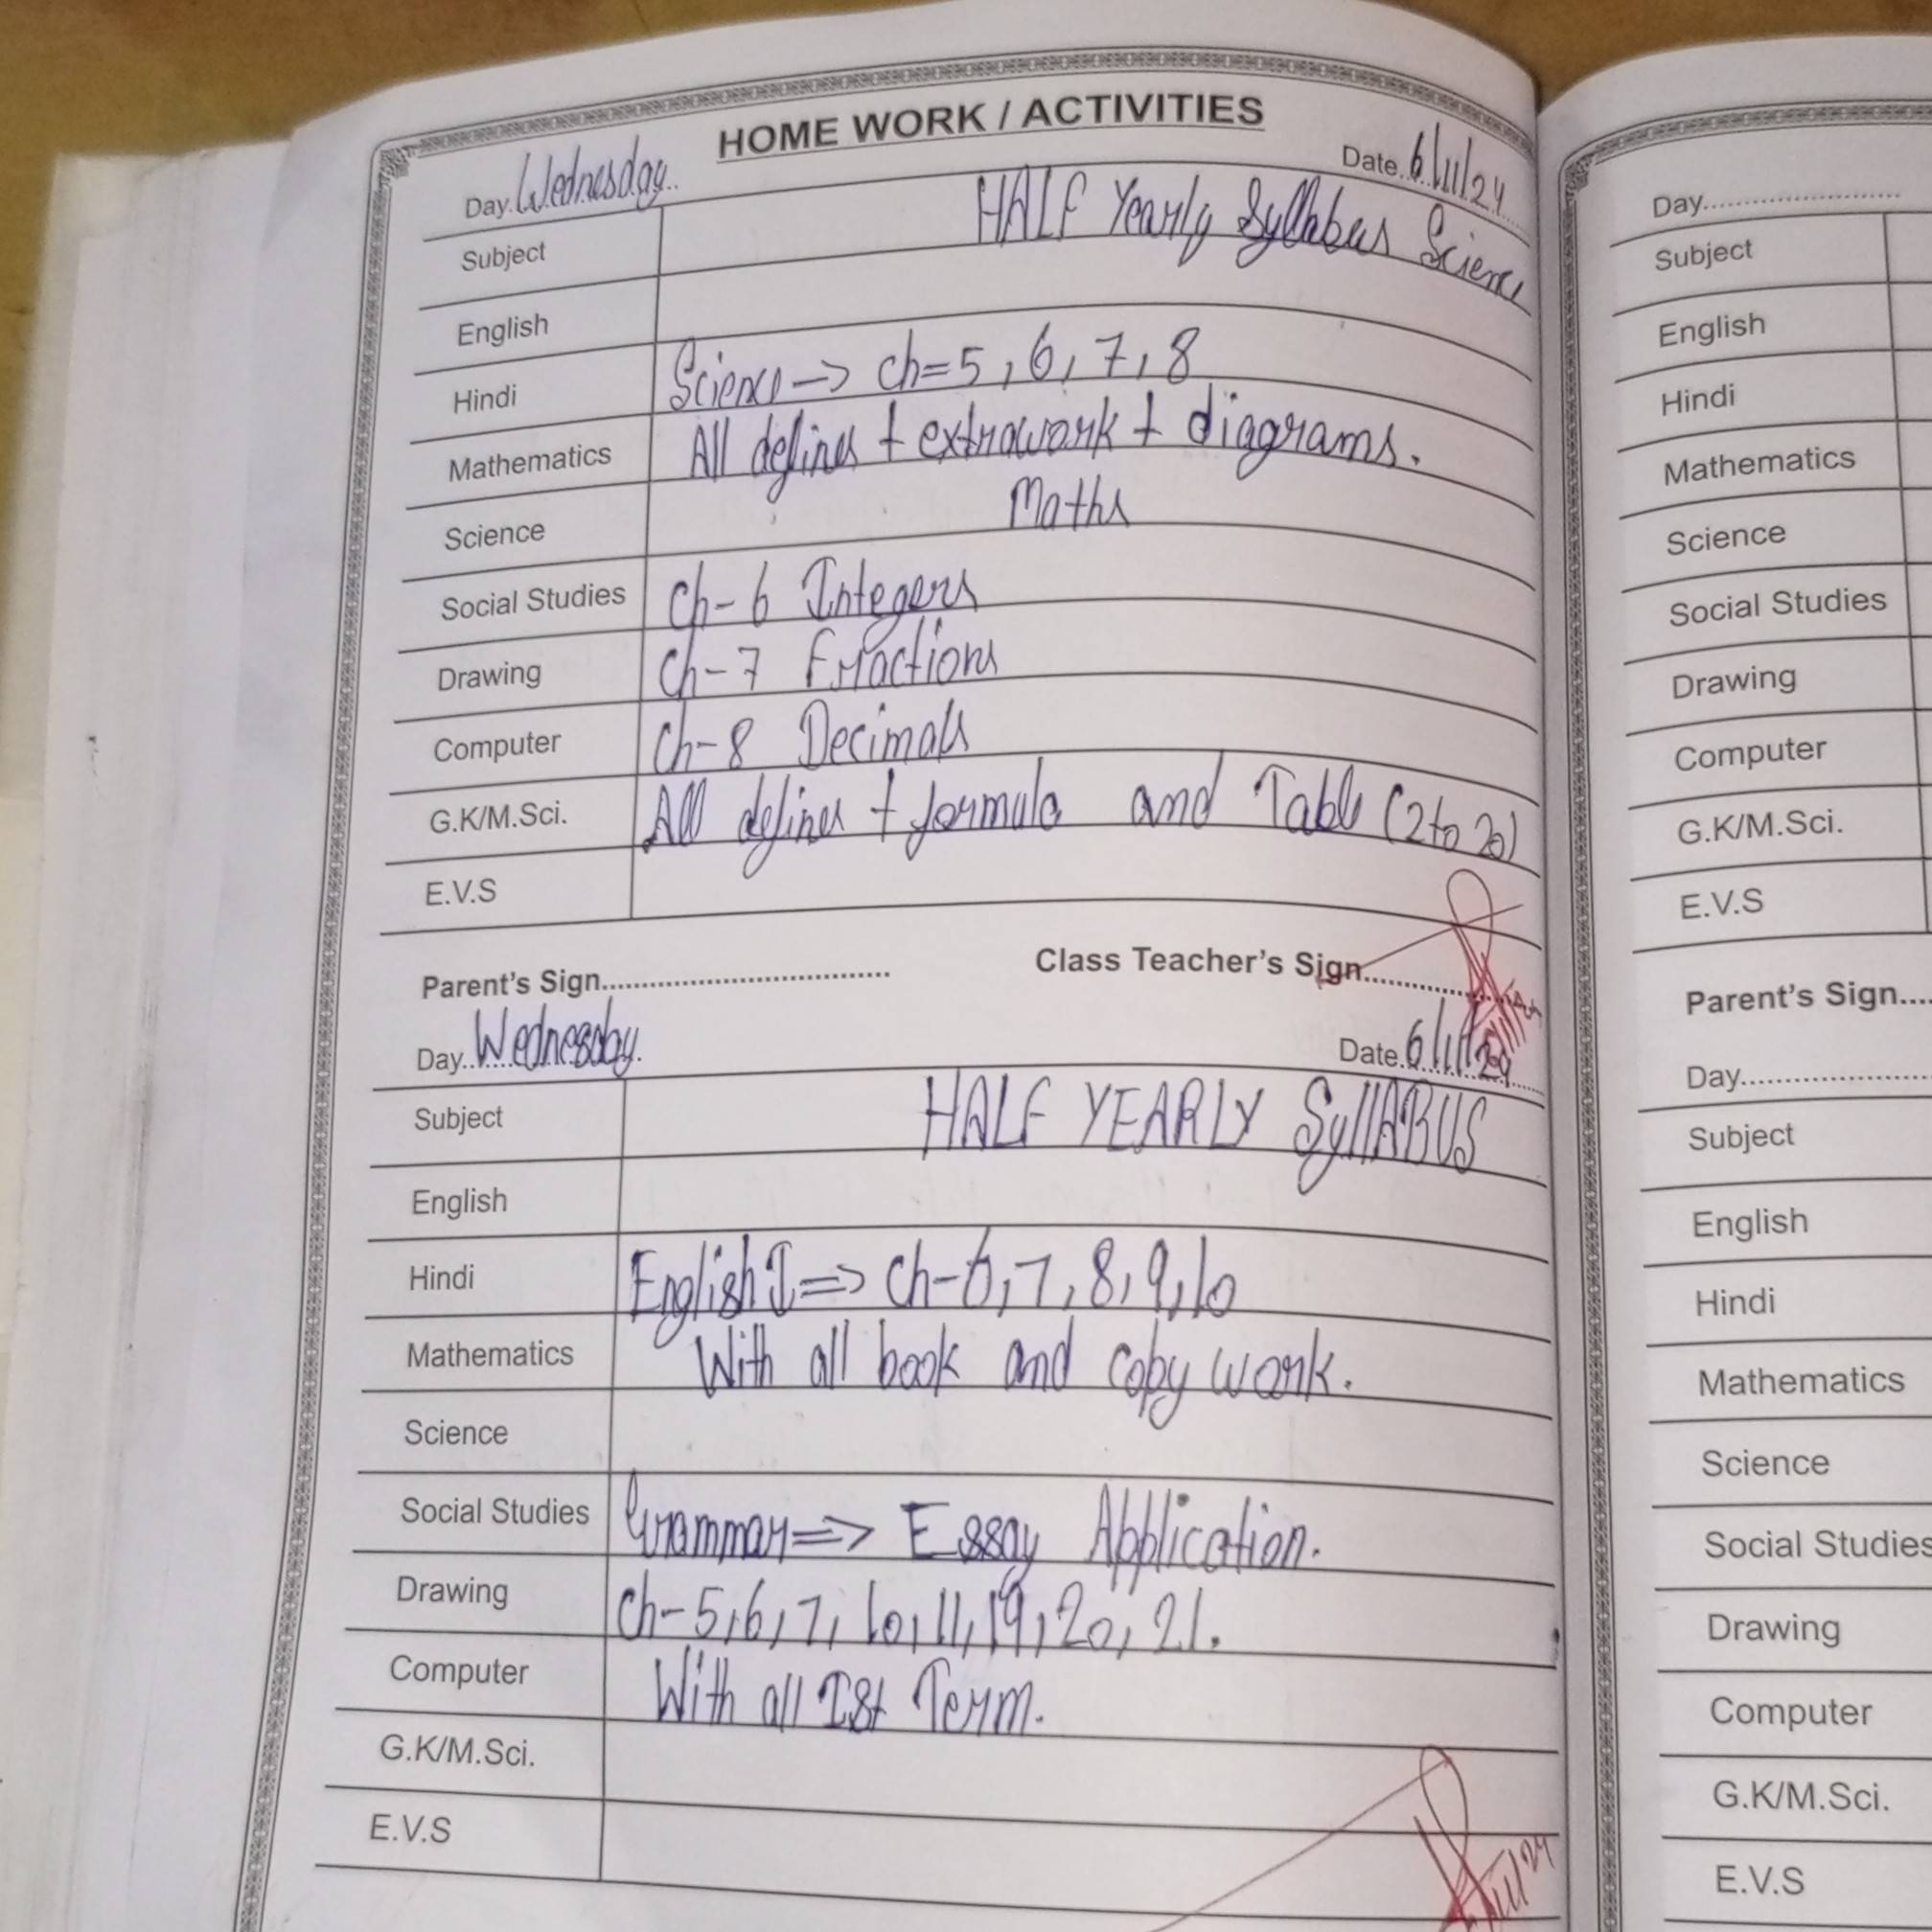 HOME WORK / ACTIVITIES
Day. Wednesday Date. 6/11/24
Subject HALF Yearly Syllabus Science
English
Hindi Science -> ch=5, 6, 7, 8
Mathematics All defines + extrawork + diagrams.
Science Maths
Social Studies Ch-6 Integers
Drawing Ch-7 Fractions
Computer Ch-8 Decimals
G.K/M.Sci. All defines + formula and Table (2 to 20)
E.V.S
Parent's Sign.................... Class Teacher's Sign..............
Day.. Wednesday. Date. 6/11/24
Subject HALF YEARLY SyllABUS
English
Hindi English I => Ch-6, 7, 8, 9, 10
Mathematics With all book and copy work.
Science
Social Studies Grammar => Essay Application.
Drawing Ch-5, 6, 7, 10, 11, 19, 20, 21.
Computer With all Ist Term.
G.K/M.Sci.
E.V.S
Day....................
Subject
English
Hindi
Mathematics
Science
Social Studies
Drawing
Computer
G.K/M.Sci.
E.V.S
Parent's Sign....
Day....................
Subject
English
Hindi
Mathematics
Science
Social Studies
Drawing
Computer
G.K/M.Sci.
E.V.S